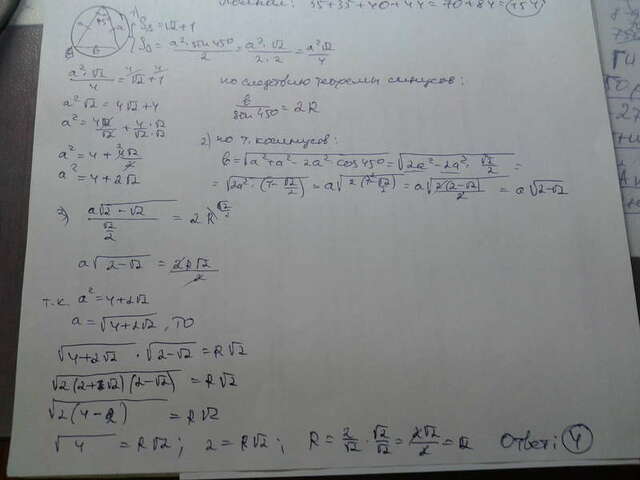 35+35+40+44=70+84=154
1) S△=√2+1
S△ = a²·sin45°/2 = a²·√2/2·2 = a²√2/4
a²·√2/4 = √2+1
a²√2 = 4√2+4
a² = 4√2/√2 + 4·√2/√2·√2
a² = 4+4√2/2
a² = 4+2√2
по следствию теоремы синусов:
b/sin45° = 2R
2) по т. косинусов:
b=√a²+a²-2a²·cos45° = √2a²-2a²·√2/2 =
= √2a²·(1-√2/2) = a√2(1-√2/2) = a√2(2-√2)/2 = a√2-√2
3) a√2-√2/√2/2 = 2R
a√2-√2 = 2R√2/2
т.к. a²=4+2√2
a=√4+2√2, то
√4+2√2 · √2-√2 = R√2
√2(2+√2)(2-√2) = R√2
√2(4-2) = R√2
√4 = R√2; 2=R√2; R=2/√2·√2/√2=2√2/2=√2 Ответ: 4